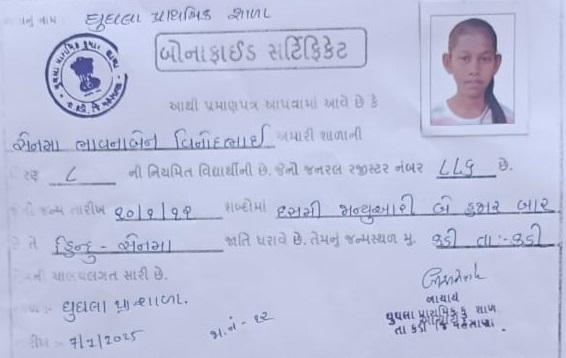 નું નામ : ઘુઘલા પ્રાથમિક શાળા
બોનાફાઈડ સર્ટિફિકેટ
આથી પ્રમાણપત્ર આપવામાં આવે છે કે
સેનમા ભાવનાબેન વિનોદભાઈ અમારી શાળાની
૮ ની નિયમિત વિદ્યાર્થીની છે. જેનો જનરલ રજીસ્ટર નંબર ૮૮૬ છે.
જન્મ તારીખ ૧૦/૧/૧૨ શબ્દોમાં દસમી જાન્યુઆરી બે હજાર બાર
તે હિન્દુ - સેનમા જાતિ ધરાવે છે. તેમનું જન્મસ્થળ મુ. કડી તા :- કડી
ની ચાલચલગત સારી છે.
ઘુઘલા પ્રા શાળા.
7/1/2025
જા.નં - ૬૨
આચાર્ય
ઘુઘલા પ્રાથમિક શાળા
તા કડી જિ મહેસાણા.